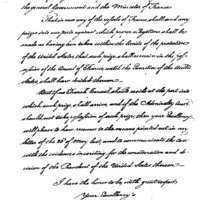 the general Government and the Minister of France.
That in case any of the vessels of France shall send any
prizes into our ports against which, proof is legitimate, shall be
made as having been taken within the limits of the protection
of the United States, that such prize shall remain in the
of the Consul of France, until the Executive of the United
States, shall have decided thereon.
But if no French Consul should reside at the port into
which, such prize shall arrive, and if the Admiralty Court
should not take of such prize, then your Excellency
will have to have recourse to the means pointed out in my
letter of the of May last, and to communicate the case
with the evidence in writing for the consideration and de-
cision of the President of the United States thereon.
I have the honor to be, with great respect,
Your Excellency's